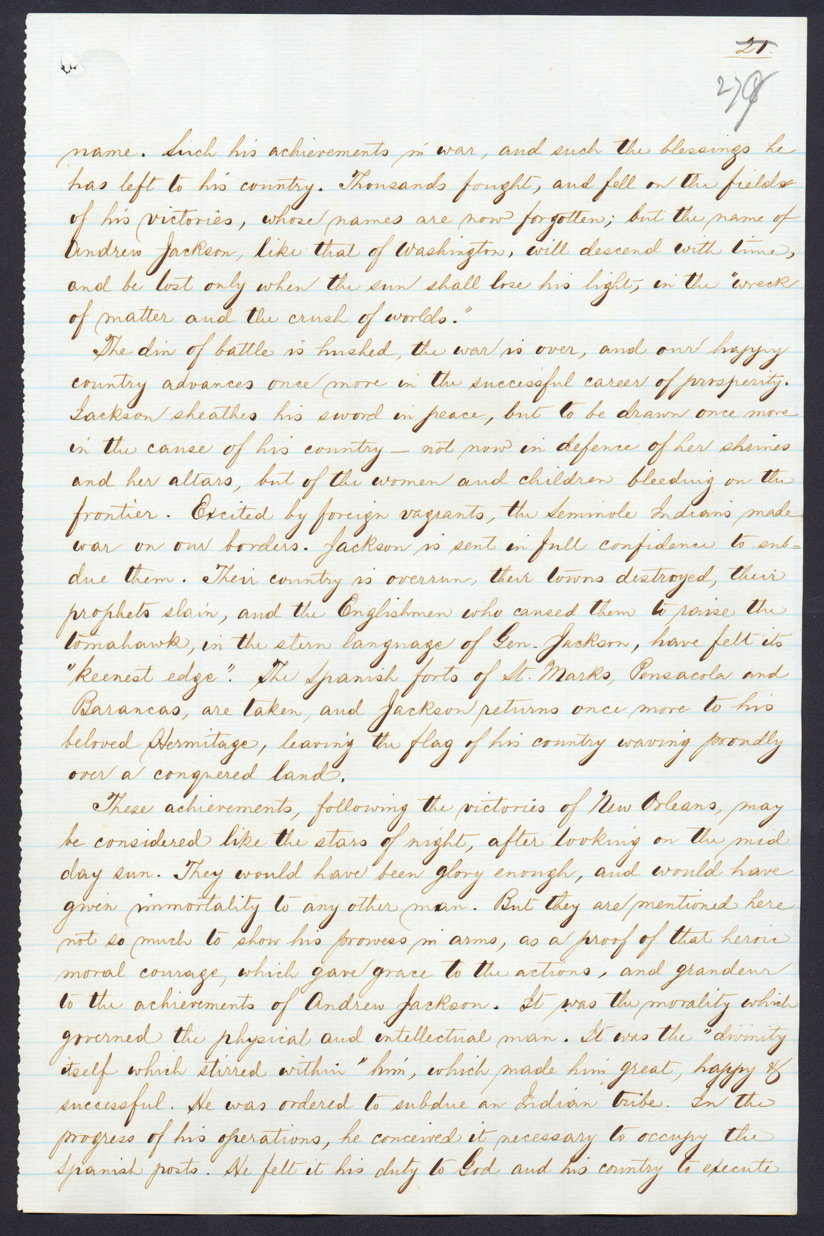 21.
278
name. Such his achievements in war, and such the blessings he
has left to his country. Thousands fought, and fell on the fields
of his victories, whose names are now forgotten; but the name of
Andrew Jackson, like that of Washington, will descend with time,
and be lost only when the sun shall lose his light, in the "wreck
of matter and the crush of worlds."
The din of battle is hushed, the war is over, and our happy
country advances once more in the successful career of prosperity.
Jackson sheathes his sword in peace, but to be drawn once more
in the cause of his country — not now in defence of her shrines
and her altars, but of the women and children bleeding on the
frontier. Excited by foreign vagrants, the Seminole Indians made
war on our borders. Jackson is sent in full confidence to sub=
due them. Their country is overrun, their towns destroyed, their
prophets slain, and the Englishmen who caused them to raise the
tomahawk, in the stern language of Gen. Jackson, have felt its
"keenest edge". The Spanish forts of St. Marks, Pensacola and
Barancas, are taken, and Jackson returns once more to his
beloved Hermitage, leaving the flag of his country waving proudly
over a conquered land.
These achievements, following the victories of New Orleans, may
be considered like the stars of night, after looking on the mid
day sun. They would have been glory enough, and would have
given immortality to any other man. But they are mentioned here
not so much to show his prowess in arms, as a proof of that heroic
moral courage, which gave grace to the actions, and grandeur
to the achievements of Andrew Jackson. It was the morality which
governed the physical and intellectual man. It was the "divinity
itself which stirred within" him, which made him great, happy &
successful. He was ordered to subdue an Indian tribe. In the
progress of his operations, he conceived it necessary to occupy the
Spanish posts. He felt it his duty to God and his country to execute